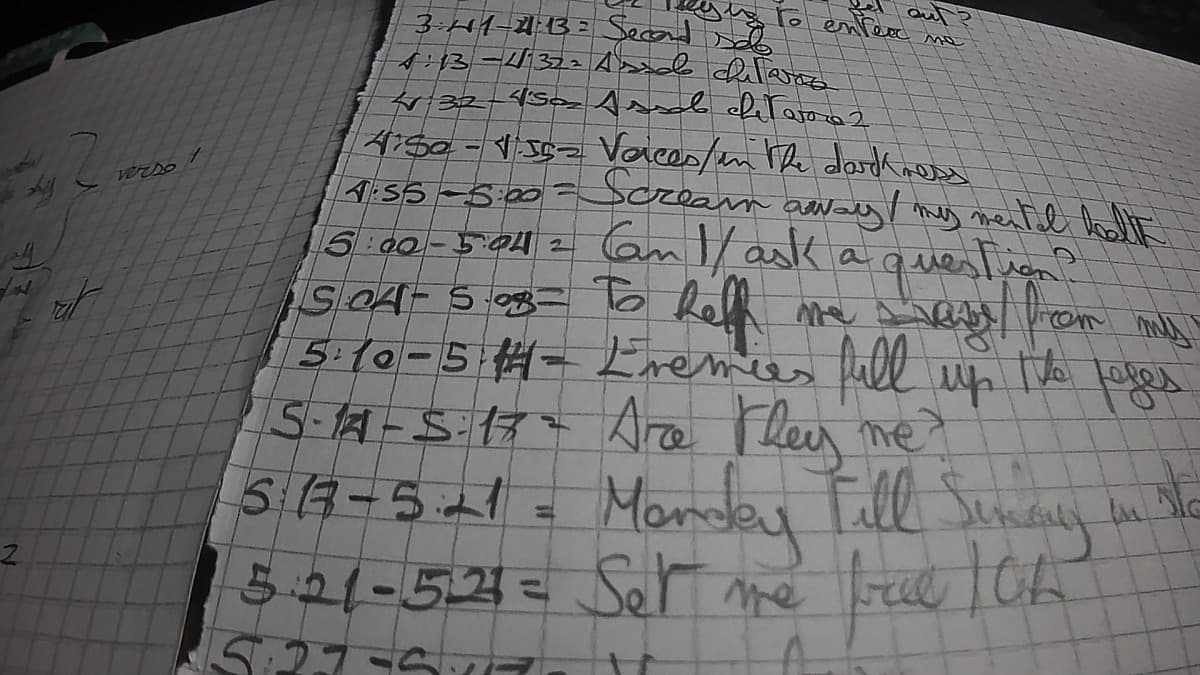 get out?
trying to enter me
3:41-4:13= Second solo
4:13-4:32= Assolo chitarra
4:32-4:50= Assolo chitarra 2
4:50-4:55= Voices/in the darkness
4:55-5:00= Scream away/my mental health
5:00-5:04= Can I/ask a question?
5:04-5:08= To help me /from my
5:10-5:14= Enemies full up the pages
5:14-5:17= Are they me?
5:17-5:21= Monday till Sunday in
5:21-5:21= Set me free/
verso 1
rit
2